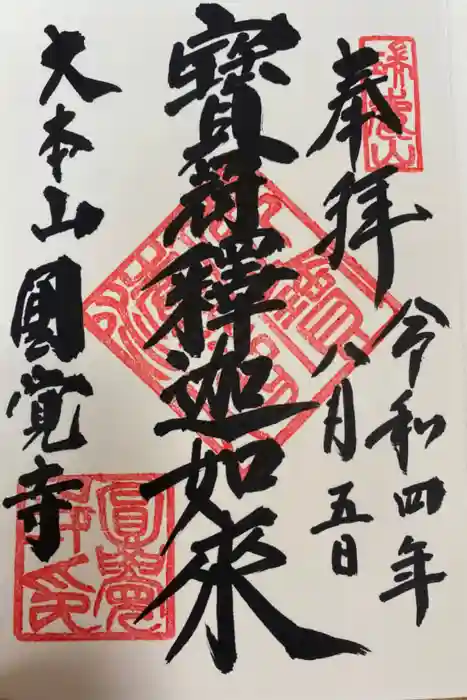 奉拝
令和四年
八月五日
寶冠釋迦如來
大本山圓覚寺
瑞鹿山